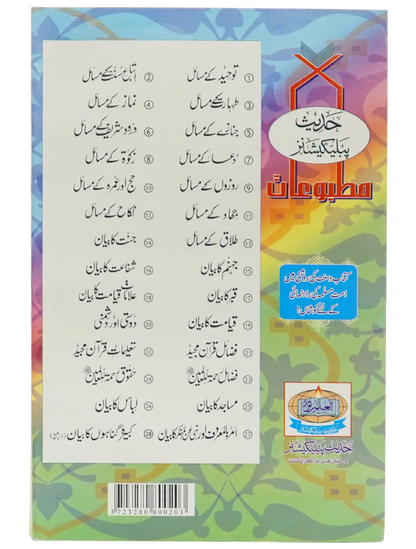 حدیث
پبلیکیشنز
مطبوعات
① توحید کے مسائل
② اتباع سنت کے مسائل
③ طہارت کے مسائل
④ نماز کے مسائل
⑤ جنازے کے مسائل
⑥ درود شریف کے مسائل
⑦ دعا کے مسائل
⑧ زکوٰۃ کے مسائل
⑨ روزوں کے مسائل
⑩ حج اور عمرہ کے مسائل
⑪ جہاد کے مسائل
⑫ نکاح کے مسائل
⑬ طلاق کے مسائل
⑭ جنت کا بیان
⑮ جہنم کا بیان
⑯ شفاعت کا بیان
⑰ قبر کا بیان
⑱ علامات قیامت کا بیان
⑲ قیامت کا بیان
⑳ دوستی اور دشمنی
㉑ فضائل قرآن مجید
㉒ تعلیمات قرآن مجید
㉓ فضائل رحمۃ للعالمین
㉔ حقوق رحمۃ للعالمین
㉕ مساجد کا بیان
㉖ لباس کا بیان
㉗ امر بالمعروف اور نہی عن المنکر کا بیان
㉘ کبیرہ گناہوں کا بیان
کتاب و سنت کی روشنی میں
امت مسلمہ کی راہنمائی
کے لئے کوشاں!
حدیث پبلیکیشنز
3723280800203